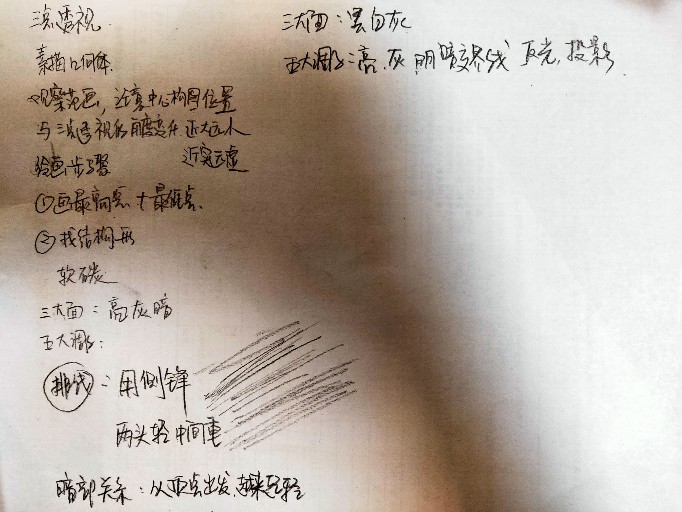 三点透视
素描几何体
观察范画，近景中心构图位置
与三点透视的角度 近大远小
近实远虚
绘画步骤
①画最高点+最低点.
②找结构形
软碳
三大面：高灰暗
五大调子：
排线：用侧锋
两头轻中间重
暗部关系：从 点出发, 越来越轻
三大面：黑白灰
五大调子：高.灰 明暗交界线 反光, 投影